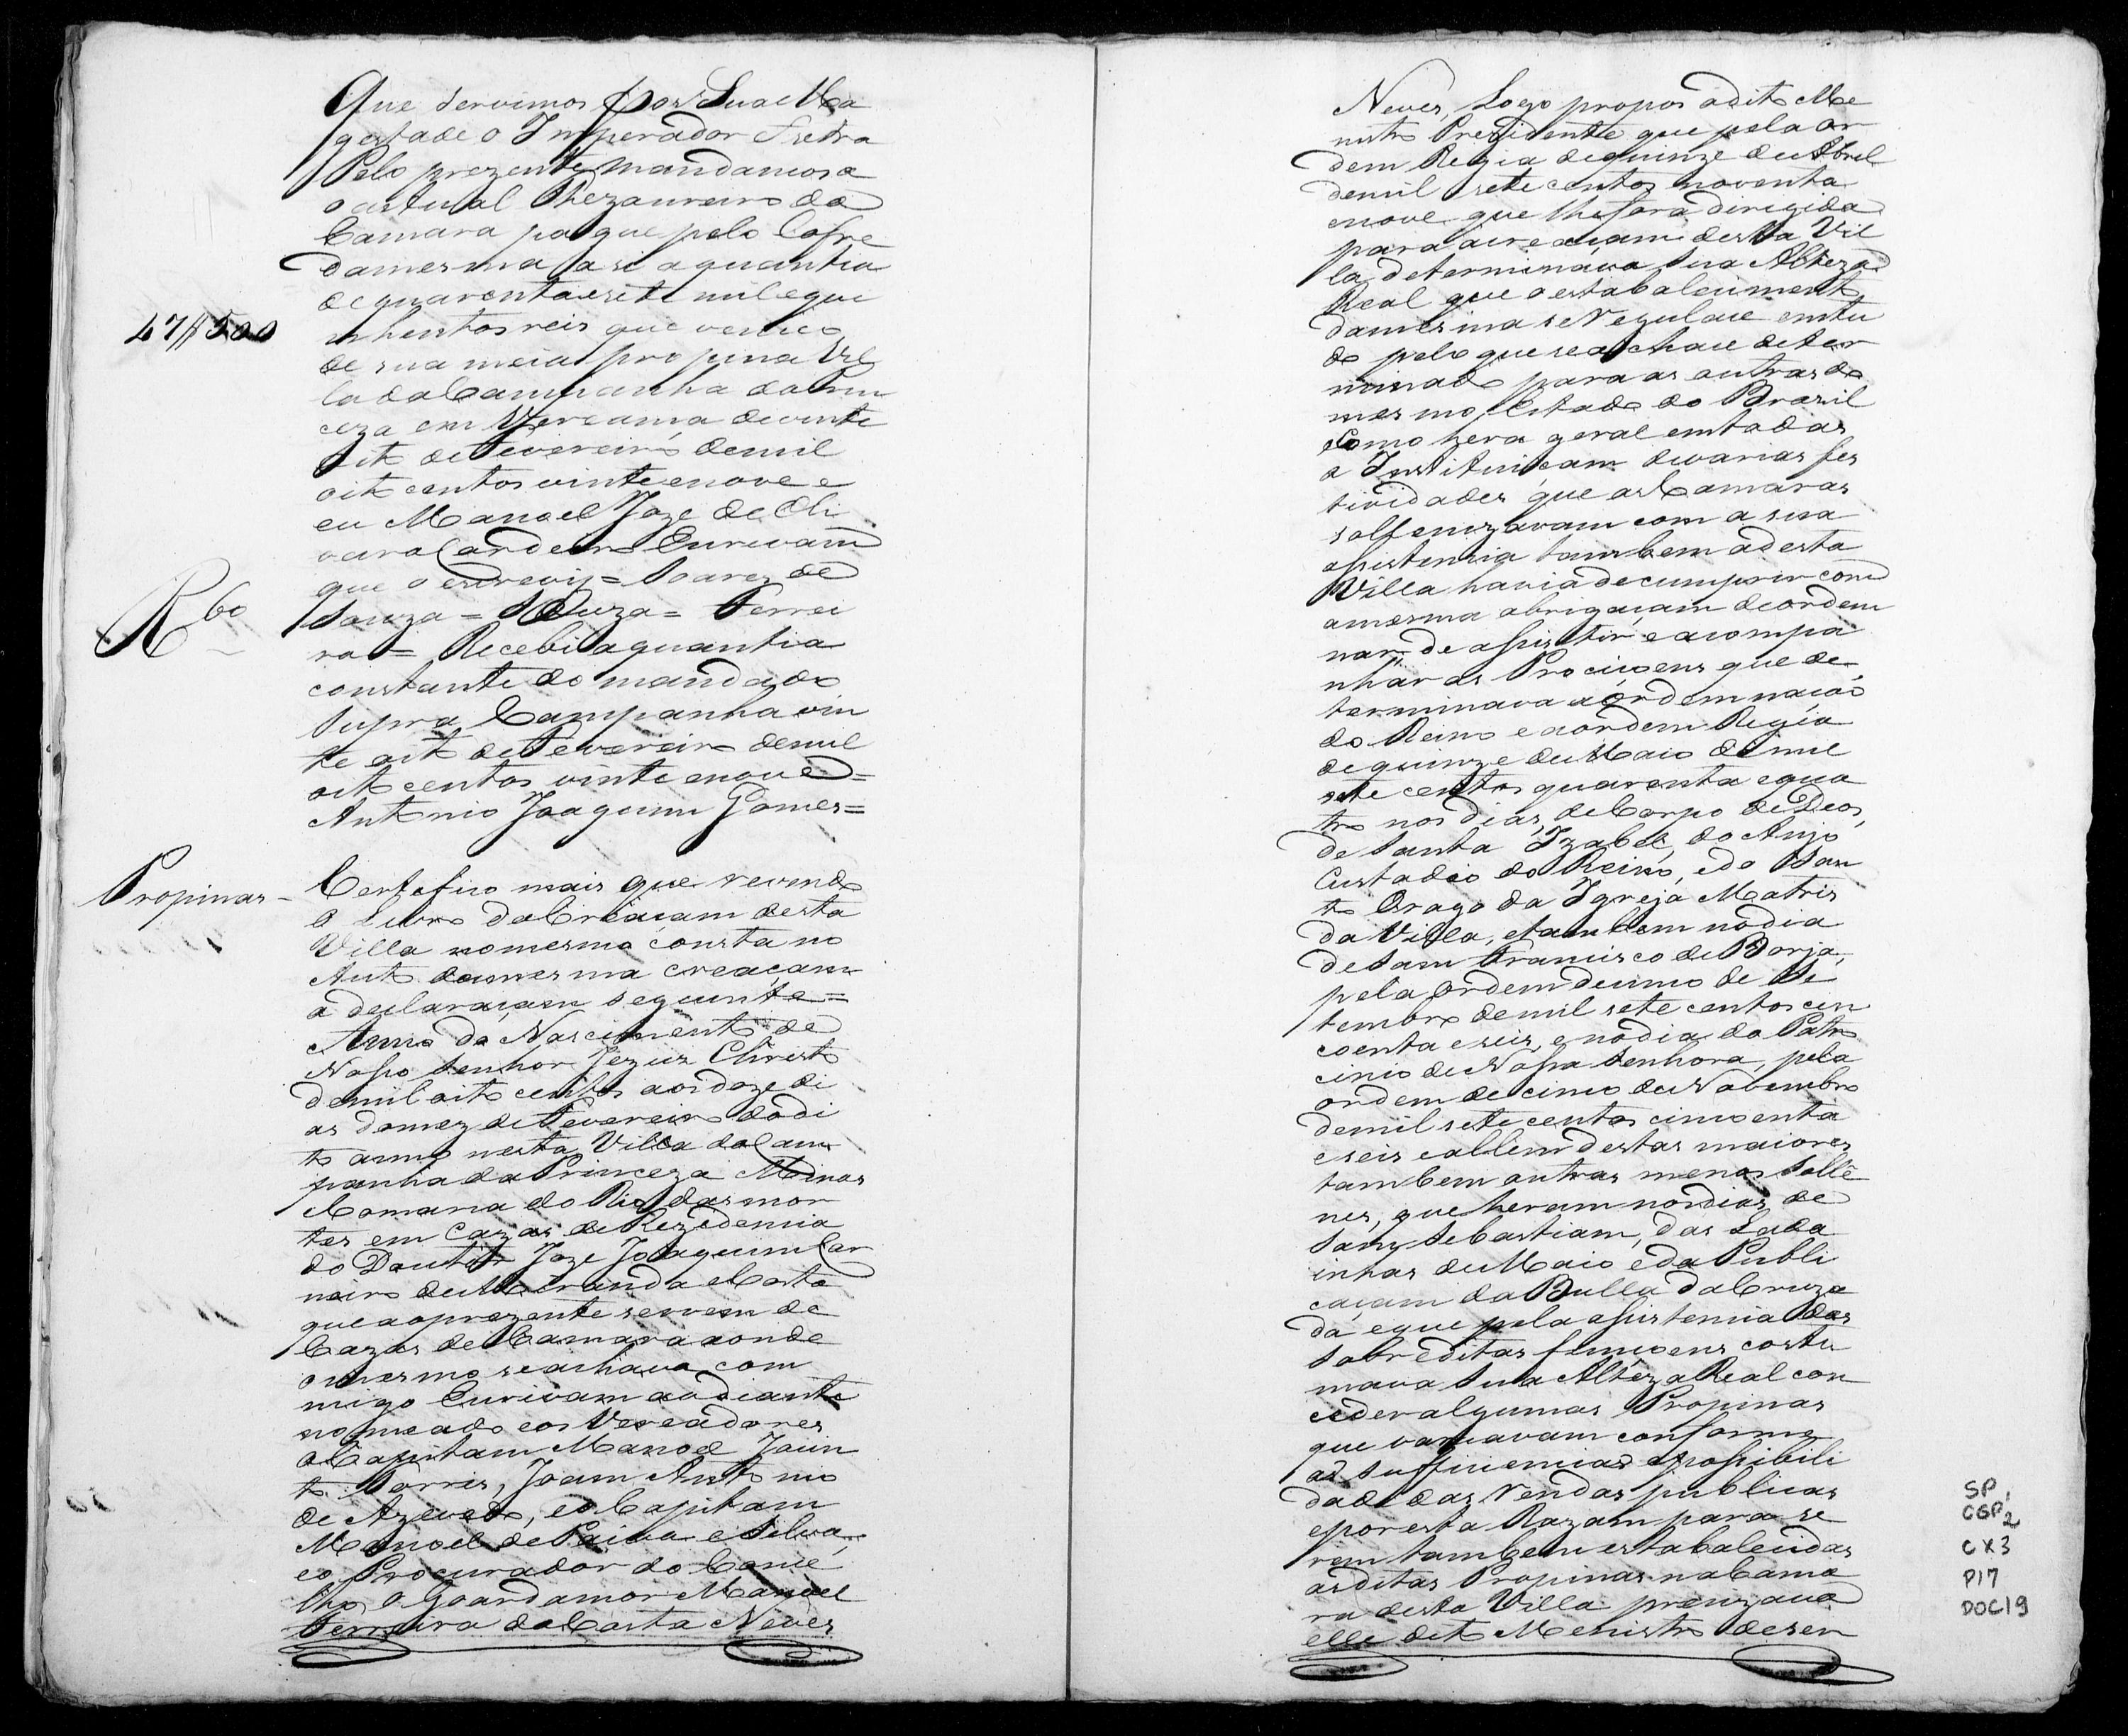 Que servimos por Sua Ma
gestade o Imperador etcetra
Pelo prezente mandamos a
o actual Thezoureiro da
Camara pague pelo Cofre
da mesma a si a quantia
de quarenta e sete mil e qui
47$500
nhentos reis que venceo
de sua meia propina Vil
la da Campanha da Prin
ceza em Vereança de vinte
oito de Fevereiro de mil
oito centos vinte e nove e
eu Manoel Joze de Oli
veira Cardozo Escrivam
que o escrevi = Soares de
Rbo
Souza = Souza = Ferrei
ra = Recebi a quantia
constante do mandado
supra Campanha vin
te oito de Fevereiro de mil
oito centos vinte e nove =
Antonio Joaquim Gomes =
Propinas -
Certefico mais que revendo
o Livro da Criaçam desta
Villa no mesmo consta no
Auto da mesma creaçam
a declaraçam seguinte =
Anno do Nascimento de
Nosso Senhor Jezus Christo
de mil oito centos aos doze di
as do mez de Fevereiro do di
to anno nesta Villa da Cam
panha da Princeza Minas
Comarca do Rio das mor
tes em Cazas de Rezidencia
do Doutor Joze Joaquim Car
neiro de Miranda e Costa
que ao prezente servem de
Cazas de Camara aonde
o mesmo se achava com
migo Escrivam ao diante
nomeado e os Vereadores
o Capitam Manoel Jacin
to, Joam Antonio
de Azevedo, e o Capitam
Manoel de Paiva e Silva,
e o Procurador do Conce
lho o Goarda mor Manoel
Ferreira da Costa Neves
Neves, Logo propos o dito Me
nistro Prezidente que pela or
dem Regia de quinze de Abril
de mil sete centos noventa
e nove que lhe fora dirigida
para a creaçam desta Vil
la, determinava Sua Alteza
Real que o estabalecimento
da mesma se Regulace em tu
do pelo que se achace deter
minado para as outras do
mesmo Estado do Brazil
e como hera geral em todas
a Instituiçam de varias fes
tividades que as Camaras
sollenizavam com a sua
asistencia tambem a desta
Villa havia de cumprir com
a mesma obrigaçam de ordem
nar de asistir e acompa
nhar as Prociçoens que de
terminava a ordem naçao
do Reino e a ordem Regia
de quinze de Maio de mil
sete centos quarenta e qua
tro nos dias de Corpo de Deos,
de Santa Izabel, do Anjo
Custodio do Reino, e do San
to Orago da Igreja Matris
da Villa, e tambem no dia
de Sam Francisco de Borja,
pela ordem de cinco de Se
tembro de mil sete centos cin
coenta e seis, e no dia do Patro
cinio de Nossa Senhora, pela
ordem de cinco de Novembro
de mil sete centos cincoenta
e seis e allem destas maiores
tambem outras menos Solle
nes, que heram nos dias de
Sam Sebastiam, das Lada
inhas de Maio e da Publi
caçam da Bulla da Cruza
da e que pela asistencia das
sobreditas funçoens costu
mava Sua Alteza Real con
ceder algumas Propinas
que variavam conforme
as sufficiencias e possibili
dade das Rendas publicas
e por esta Razam para se
rem tambem estabalecidas
as ditas Propinas na Cama
ra desta Villa precizava
elle dito Menistro de ser
SP
CGP2
CX3
P17
DOC19